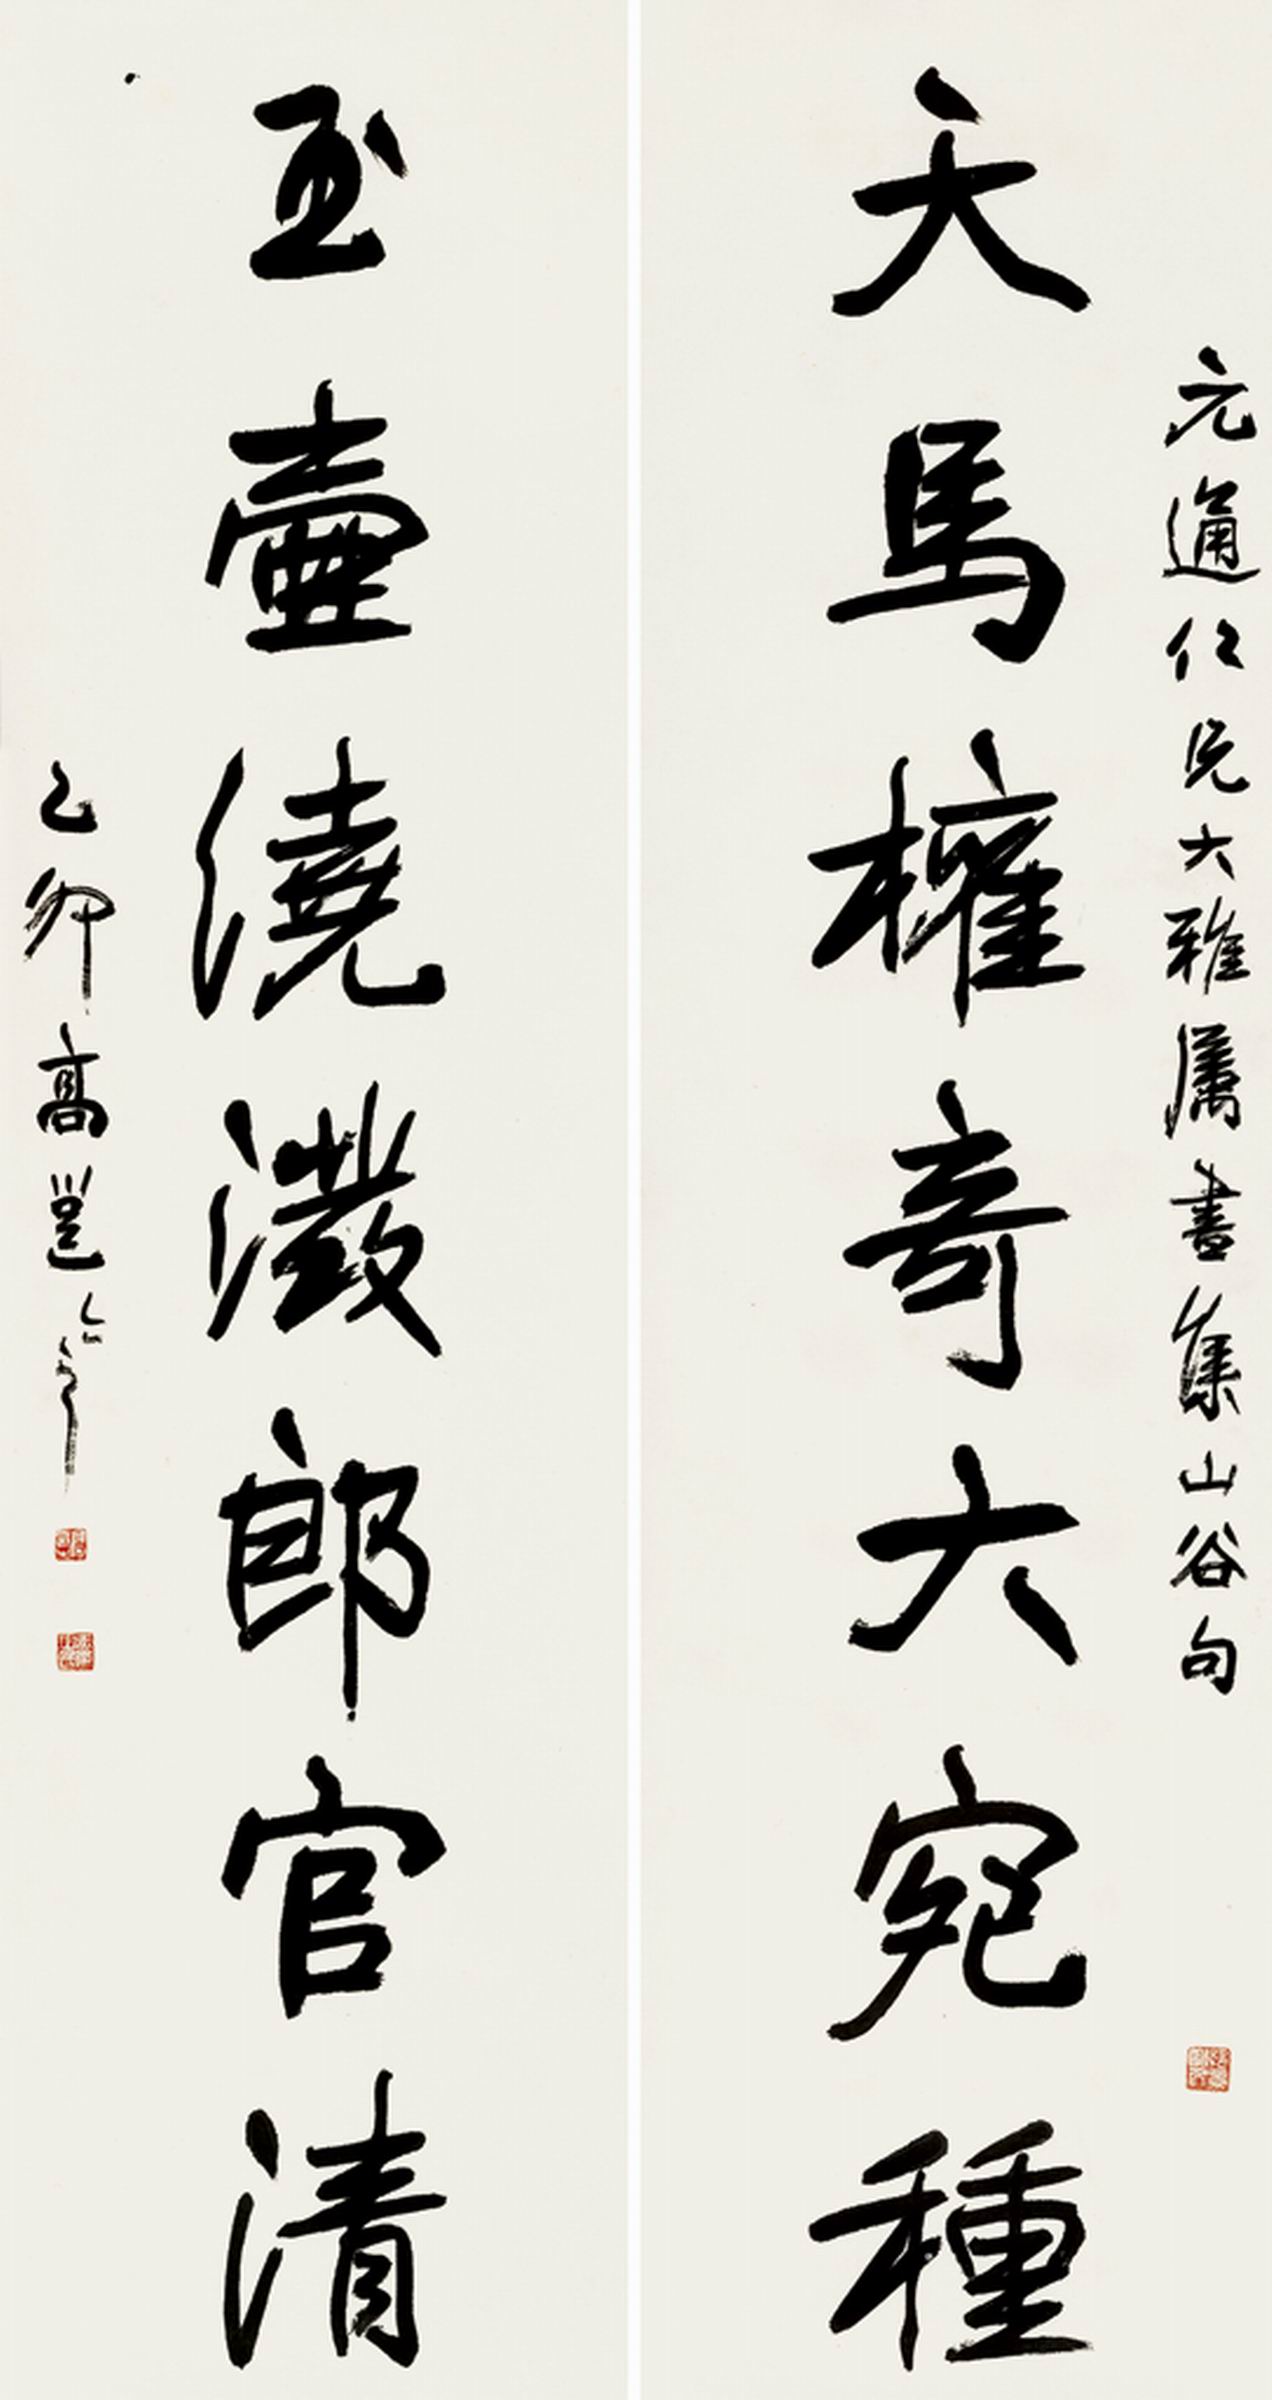 元通仁兄大雅属書集山谷句
天馬權奇大宛種
玉壺澆澂郎官清
乙卯高邕